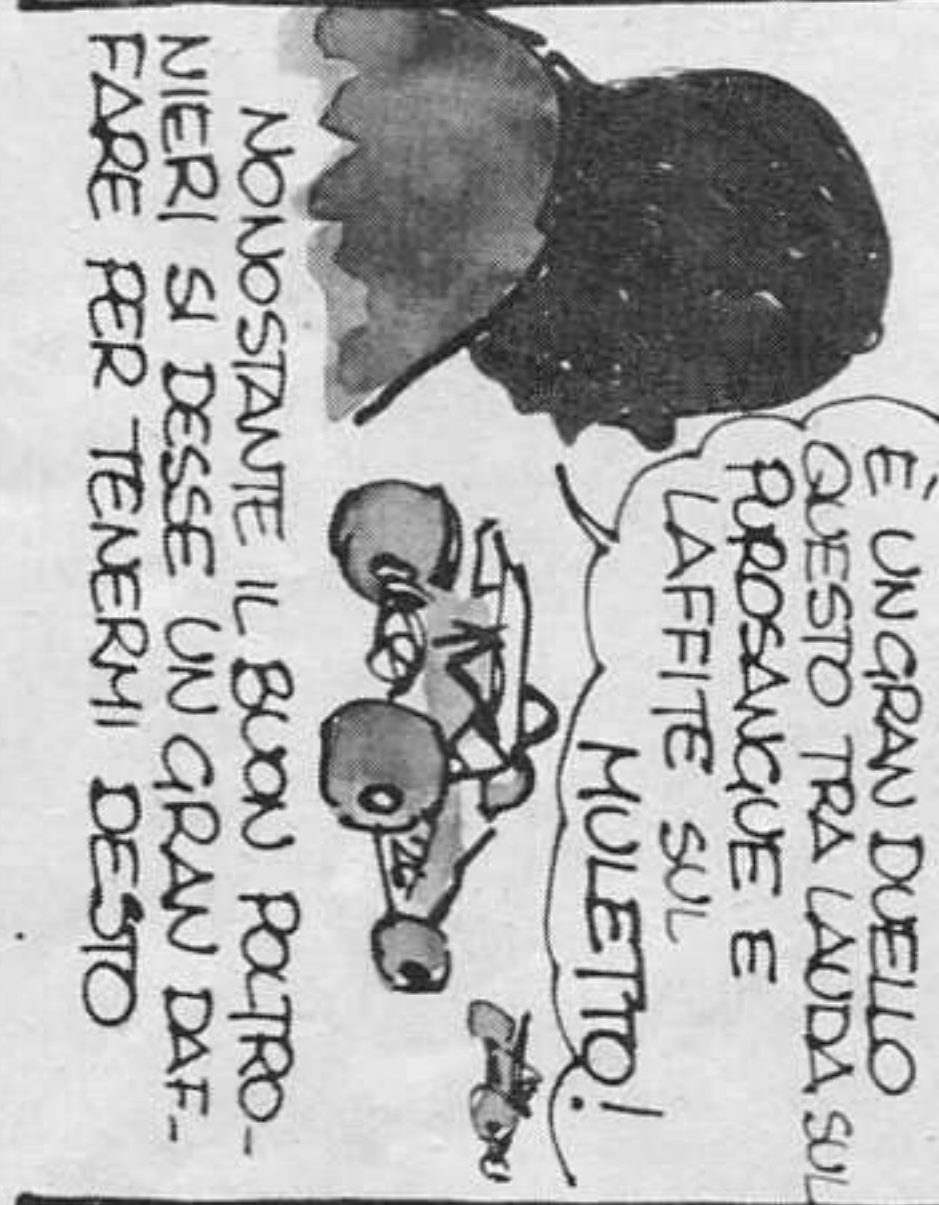 È UN GRAN DUELLO
QUESTO TRA LAUDA SUL
PUROSANGUE E
LAFFITE SUL
MULETTO!
NONOSTANTE IL BUON POLTRO-
NIERI SI DESSE UN GRAN DAF-
FARE PER TENERMI DESTO